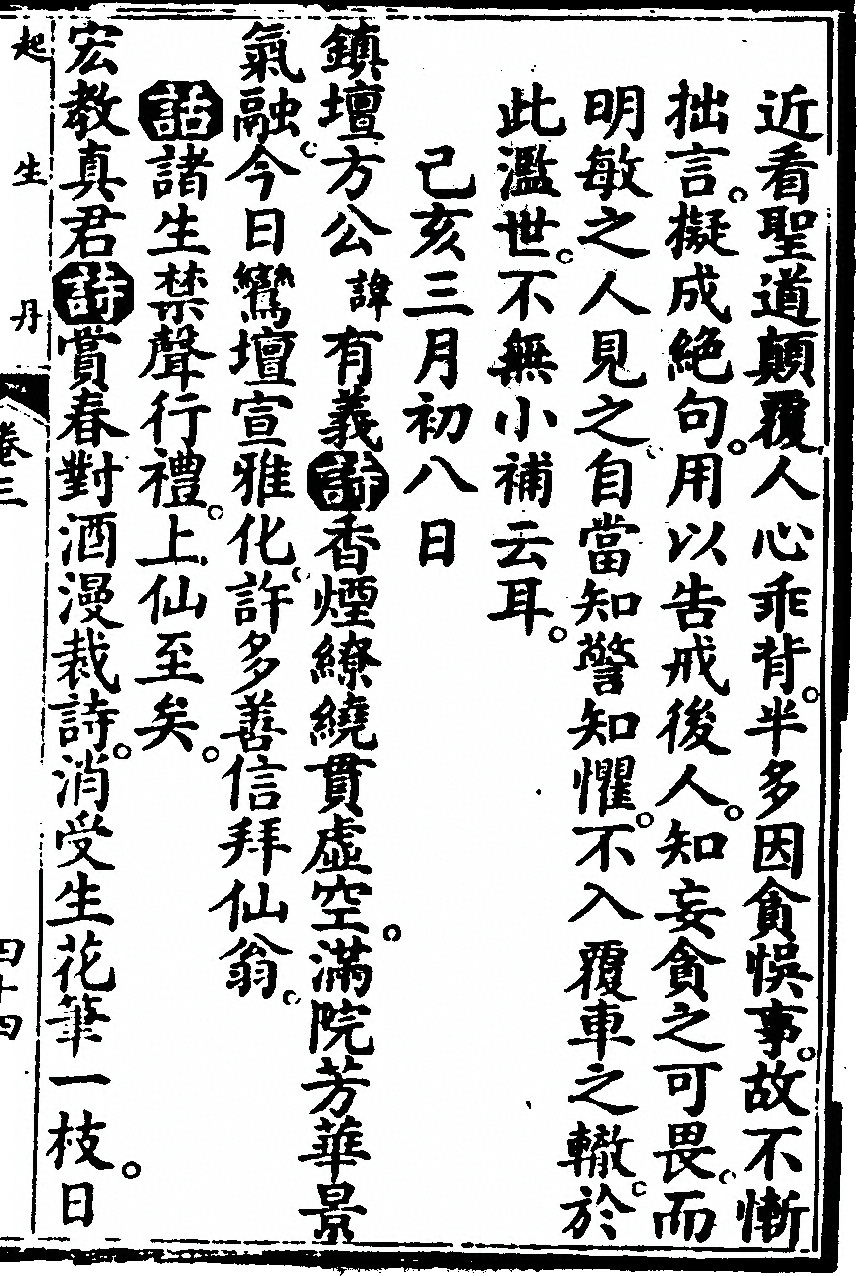 近看聖道顛覆人心乖背。半多因貪悞事。故不慚
拙言。擬成絕句。用以告戒後人。知妄貪之可畏。而
明敏之人見之。自當知警知懼。不入覆車之轍。於
此濫世。不無小補云耳。
己亥三月初八日
鎮壇方公諱有義詩香煙繚繞貫虛空。滿院芳華景
氣融。今日鸞壇宣雅化。許多善信拜仙翁。
話諸生禁聲行禮。上仙至矣。
宏教真君詩賞春對酒漫裁詩。消受生花筆一枝。日
起生丹 卷三 四十四